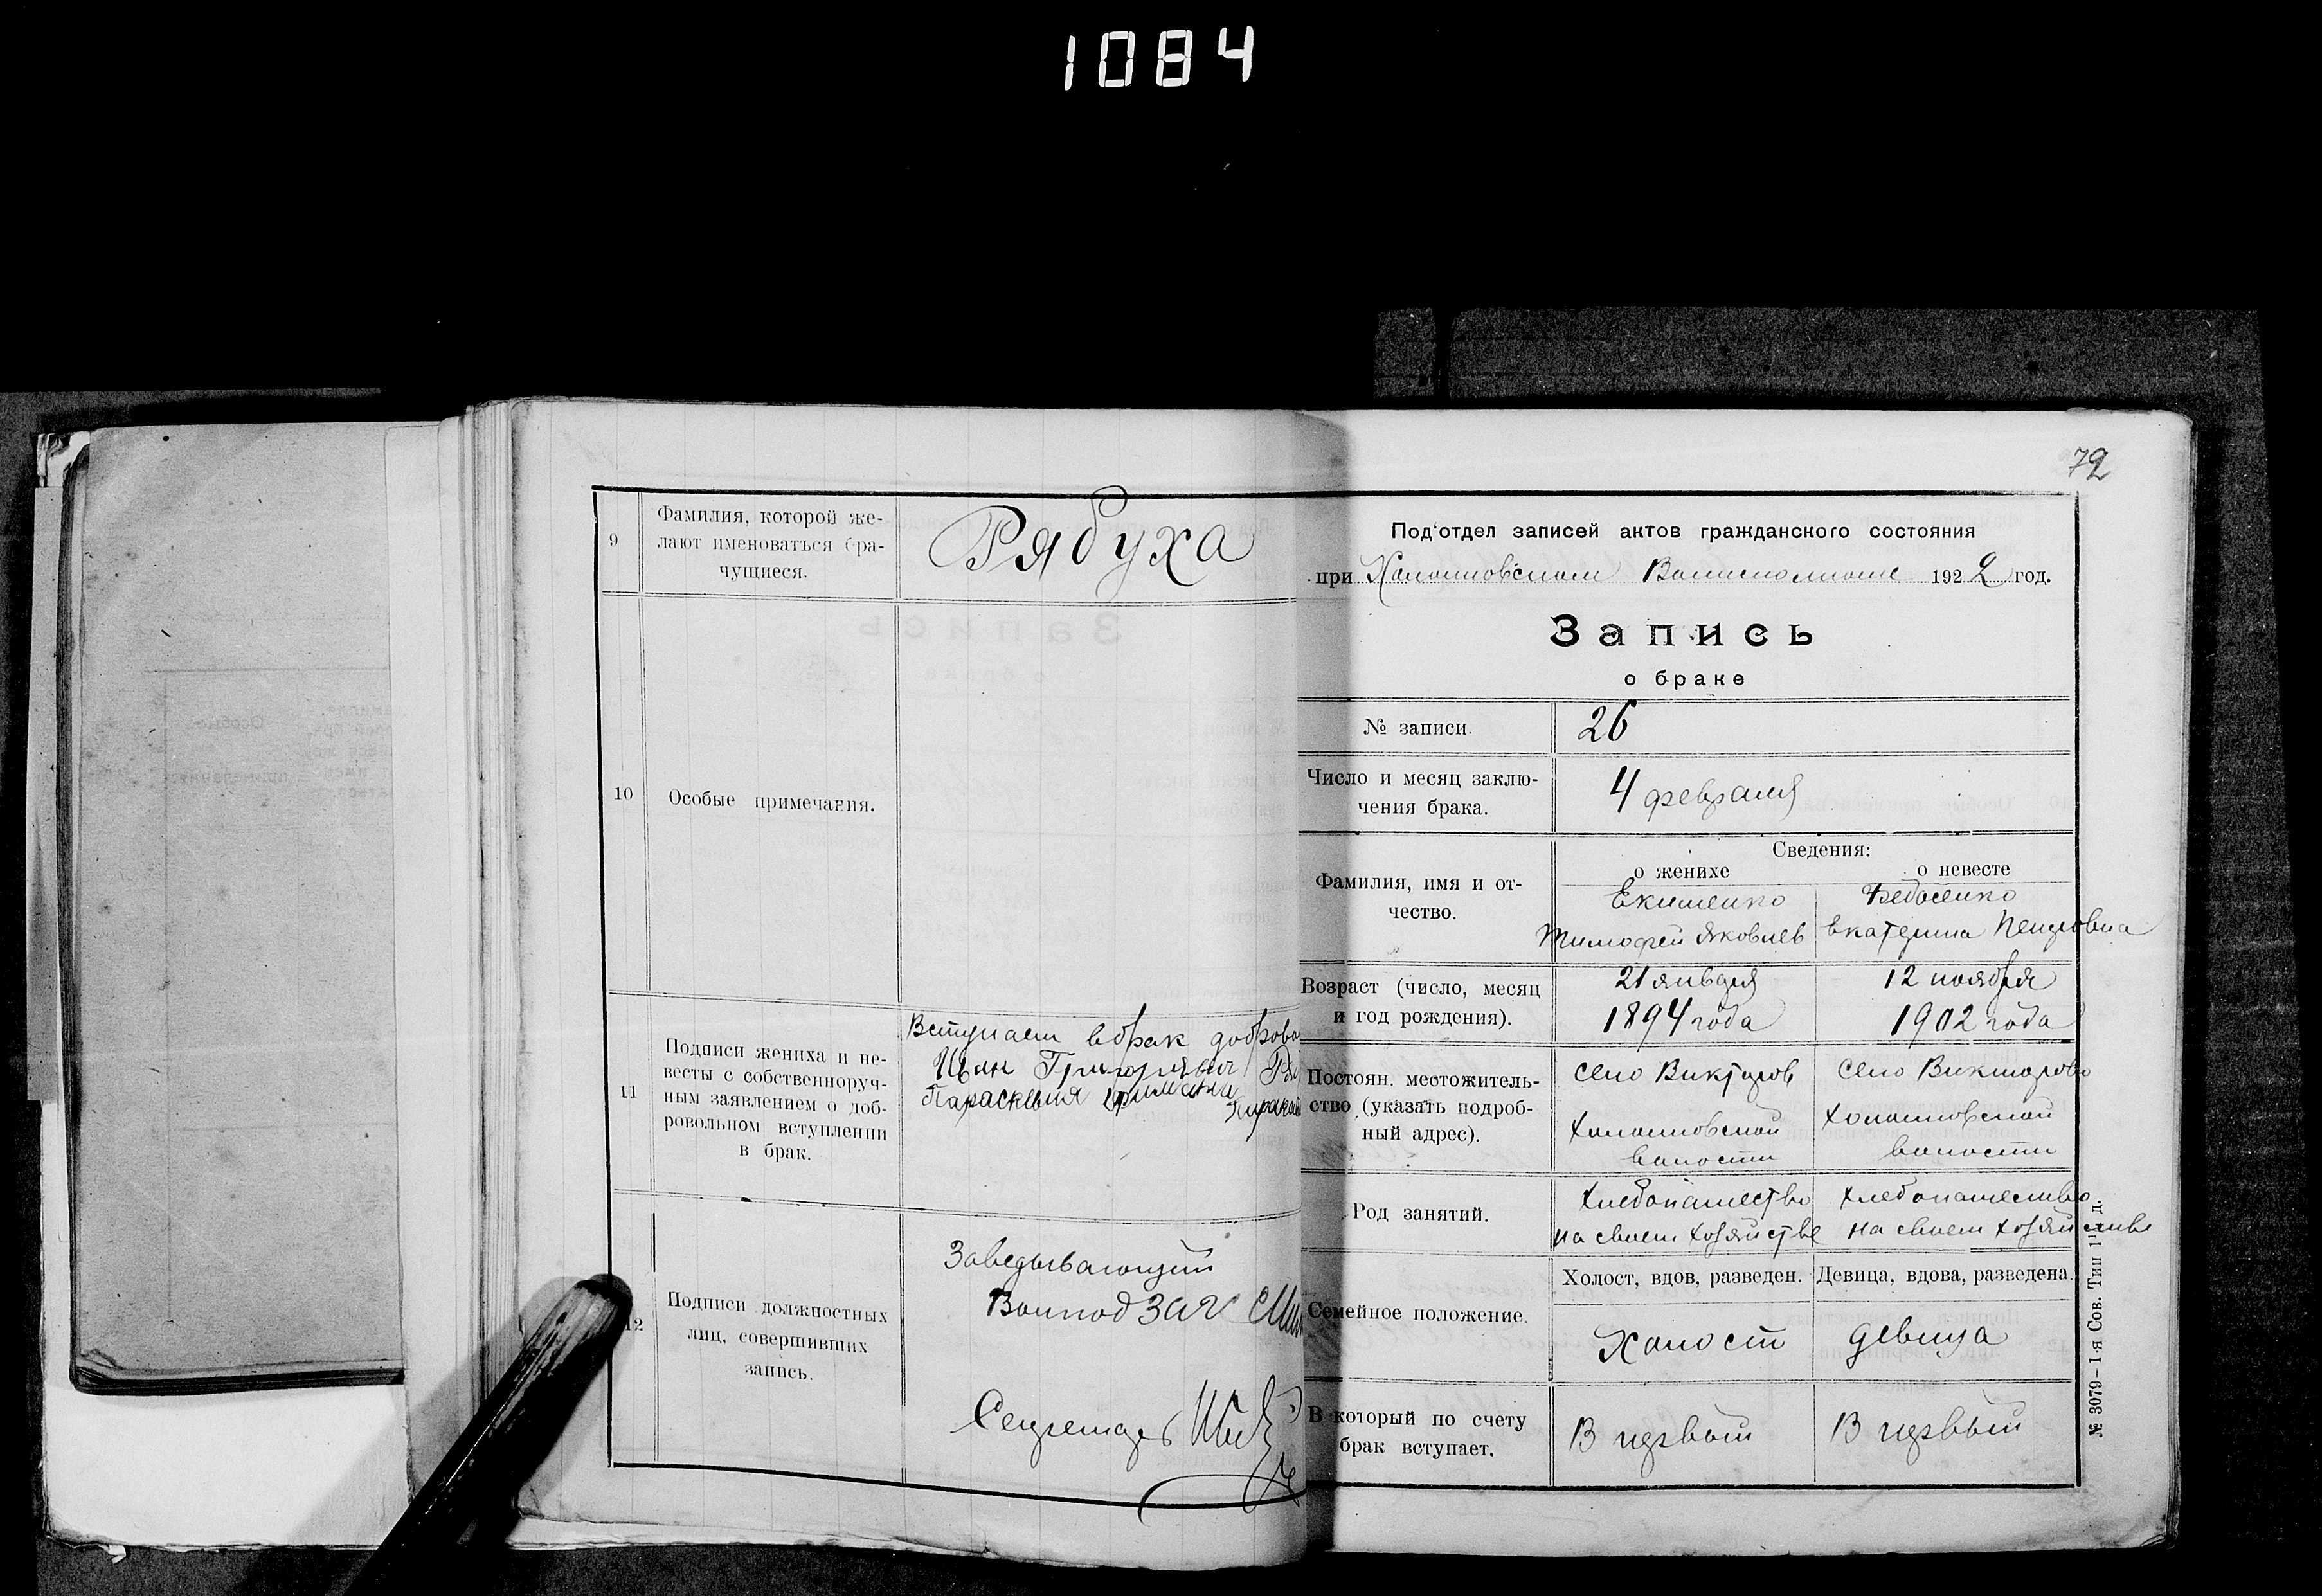 1084
9
Фамилия, которой же-
лают именоваться бра-
чущиеся.
Рябуха
10
Особые примечания.
11
Подписи жениха и не-
весты с собственноруч-
ным заявлением о доб-
ровольном вступлении
в брак.
Вступаем в брак доброво
Иван Григорьевич Ря
Параскевия
12
Подписи должностных
лиц, совершивших
запись.
Заведывающий
Волпод ЗАГС
Секретарь
72
Под'отдел записей актов гражданского состояния
при Волисполкоме 1922 год.
Запись
о браке
№ записи.
26
Число и месяц заклю-
чения брака.
4 февраля
Сведения:
о женихе
о невесте
Фамилия, имя и от-
чество.
Екименко
Тимофей Яковлев
Федосенко
Екатерина
Возраст (число, месяц
и год рождения).
21 января
1894 года
12 ноября
1902 года
Постоян. местожитель-
ство (указать подроб-
ный адрес).
Село Викторов
волости
Село Викторово
волости
Род занятий.
Хлебопашество
на своем хозяйстве
Хлебопашество
на своем хозяйстве
Семейное положение.
Холост, вдов, разведен.
Девица, вдова, разведена.
Холост
девица
В который по счету
брак вступает.
В первый
В первый
№ 3079–1-я Сов. Тип